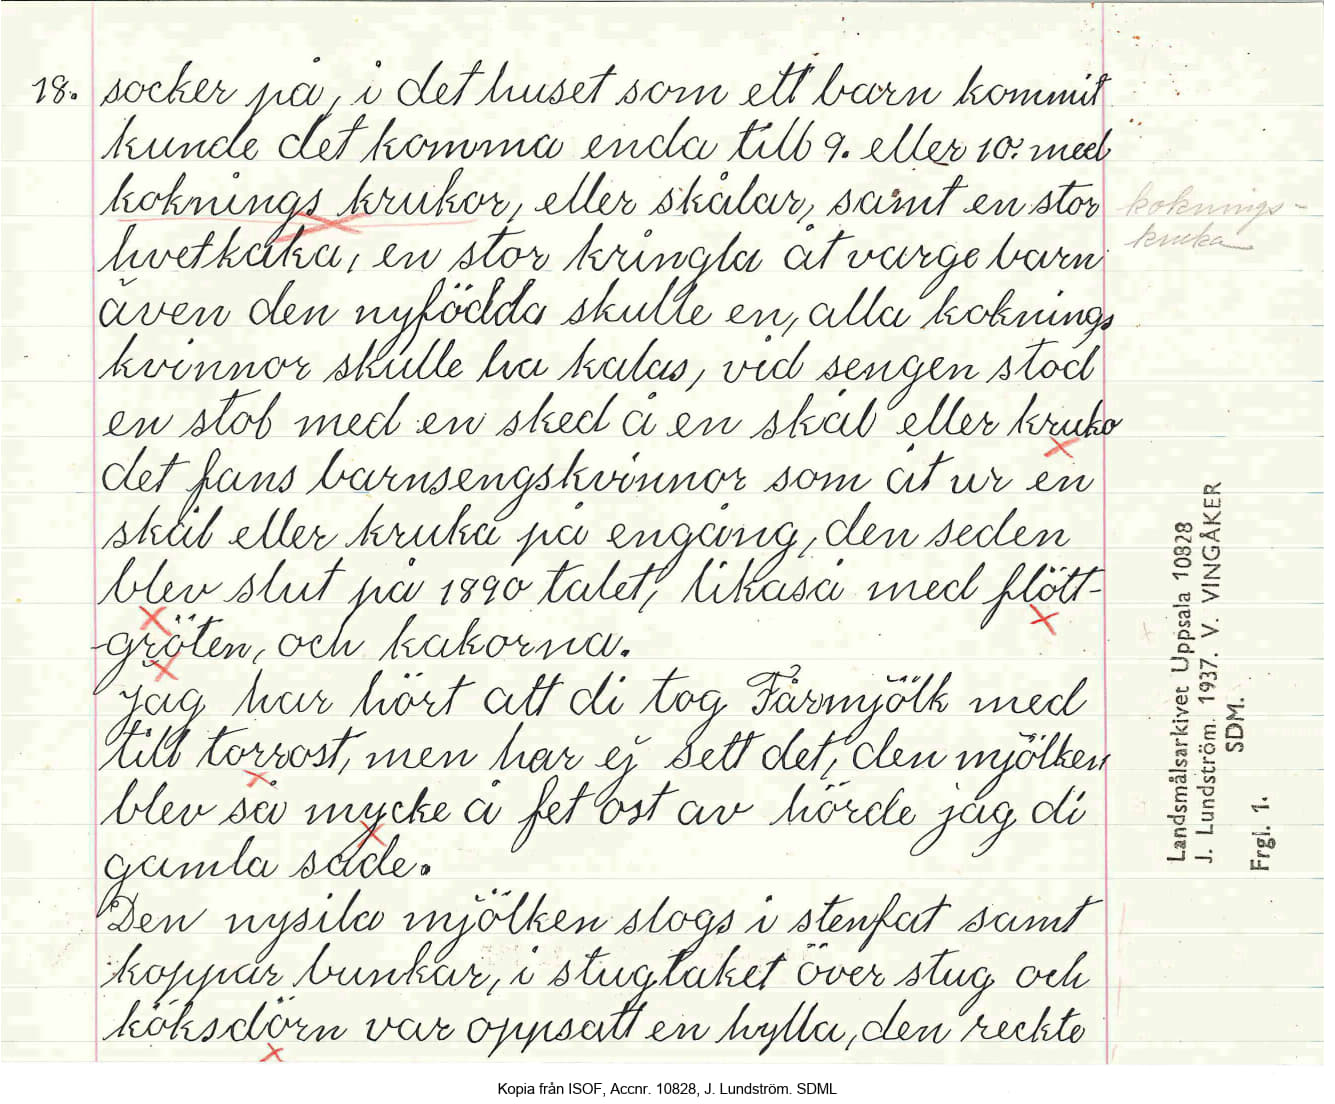 18. socker på, i det huset som ett barn kommit
kunde det komma enda till 9. eller 10. med
koknings krukor, eller skålar, samt en stor
hvetkaka, en stor kringla åt varge barn
även den nyfödda skulle en, alla koknings
kvinnor skulle ha kalas, vid sengen stod
en stol med en sked å en skål eller kruka
det fans barnsengskvinnor som åt ur en
skål eller kruka på engång, den seden
blev slut på 1890 talet, likaså med flött-
-gröten, och kakorna.
jag har hört att di tog Fårmjölk med
till torrost, men har ej sett det, den mjölken
blev så mycke å fet ost av hörde jag di
gamla sade.
Den nysila mjölken slogs i stenfat samt
koppar bunkar, i stugtaket över stug och
köksdörn var oppsatt en hylla, den reckte
koknings-
kruka
Landsmålsarkivet Uppsala 10828
J. Lundström. 1937. V. VINGÅKER
SDM.
Frgl. 1.
Kopia från ISOF, Accnr. 10828, J. Lundström. SDML